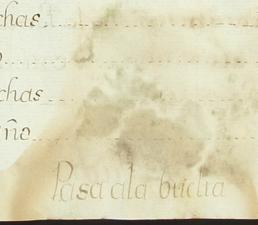 chas
chas
ño
Pasa ala buelta